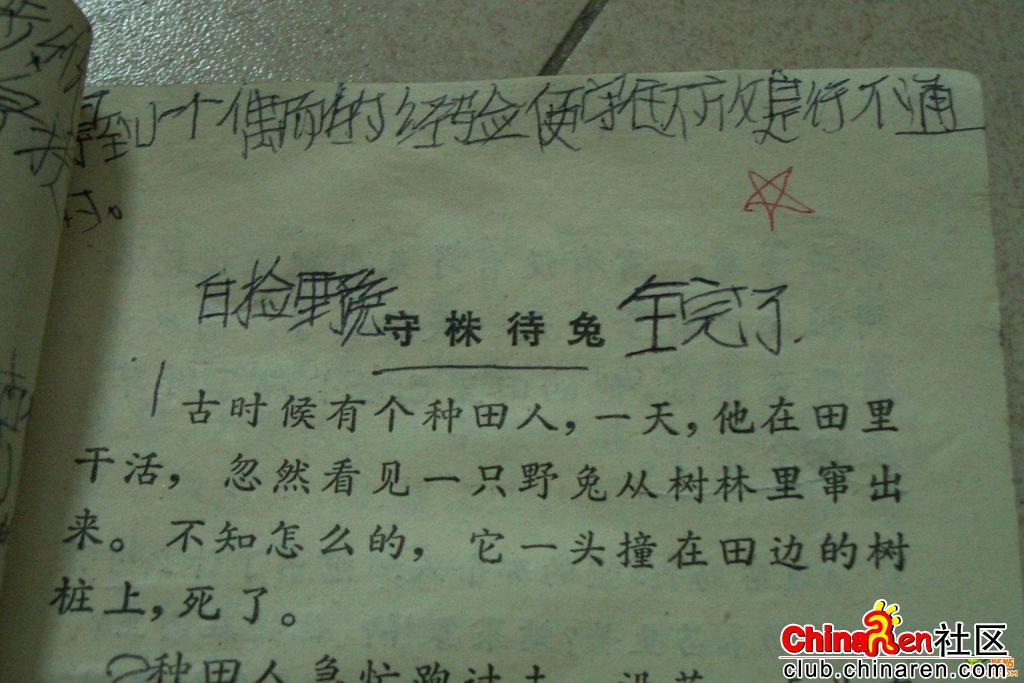 得到一个偶而的经验便守住不放是行不通
的。
白捡野兔 守株待兔 全完了.
古时候有个种田人，一天，他在田里
干活，忽然看见一只野兔从树林里窜出
来。不知怎么的，它一头撞在田边的树
桩上，死了。
种田人急忙跑过去
ChinaRen社区
club.chinaren.com